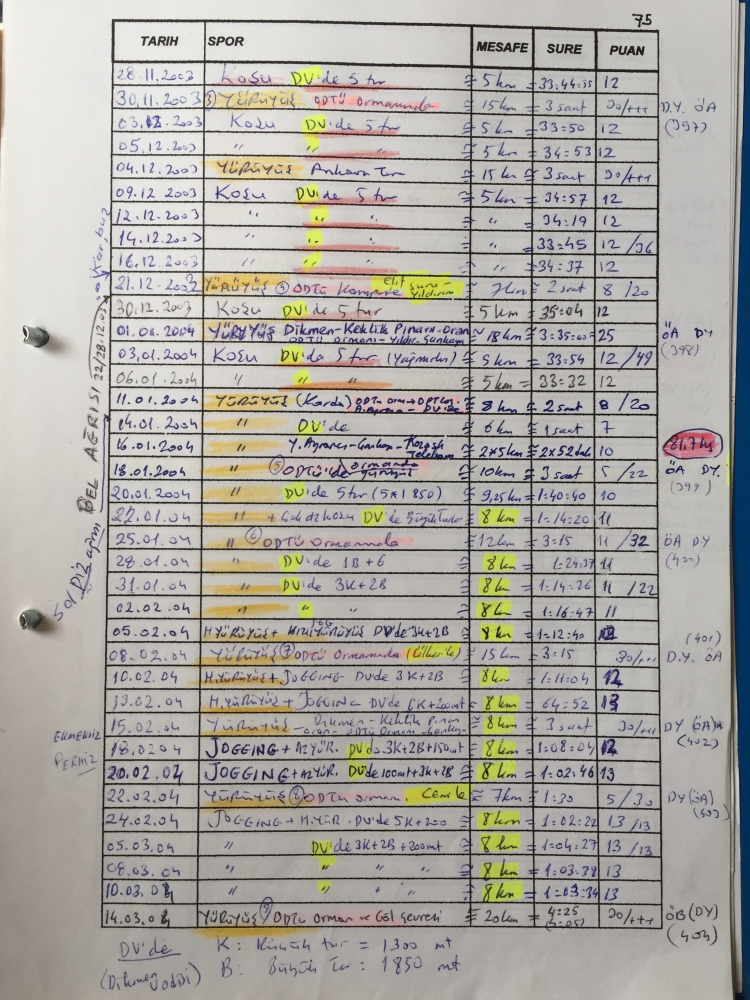 75
TARIH SPOR MESAFE SURE PUAN
28.11.2003 KOŞU DV'de 5 tur ≅ 5 km = 33:44:55 12
30.11.2003 ③ YÜRÜYÜŞ ODTÜ Ormanında ≅ 15km ≅ 3 saat 30/+++ D.Y. ÖA
03.12.2003 KOŞU DV'de 5 tur ≅ 5 km = 33:50 12 (397)
05.12.2003 " " " ≅ 5 km = 34:53 12
04.12.2003 YÜRÜYÜŞ Ankara Turu ≅ 15 km ≅ 3 saat 30/+++
09.12 2003 KOŞU DV'de 5 tur ≅ 5 km = 34:57 12
12.12.2003 " " " ≅ " 34:19 12
14.12.2003 " " " ≅ " 33:45 12 /36
16.12.2003 " " " ≅ " = 34:37 12
21.12.2003 YÜRÜYÜŞ ④ ODTÜ Kampüs elif Suna-Yıldırım ≅ 7km ≅ 2 saat 8 /20
30.12.2003 KOŞU DV'de 5 tur ≅ 5 km = 35:04 12
01.01.2004 YÜRÜYÜŞ Dikmen-Keklik Pınarı-Oran ≅ 18km ≅ 3:35:00 25 ÖA DY
ODTÜ Ormanı-Yıldız-Çankaya
03.01.2004 KOŞU DV'de 5 tur (Yağmurlu) ≅ 5 km = 33:54 12 /49 (398)
06.01.2004 " " " ≅ 5 km = 33:32 12
11.01.2004 YÜRÜYÜŞ (Karda) ≅ 8 km ≅ 2 saat 8 /20
A.Ayrancı - DV'de
14.01.2004 " DV'de ≅ 6 km ≅ 1 saat 7
16.01.2004 " Y. Ayrancı-Çankaya- Telekom ≅ 2x5km ≅ 2x52dak 10 81.7 kg
18.01.2004 " ⑤ ODTÜ ormanda ≅ 10km ≅ 3 saat 5 /22 ÖA DY.
20.01.2004 " DV'de 5 tur (5x1850) ≅ 9,25km = 1:40:40 10 (399)
22.01.04 " + DV'de ≅ 8 km = 1:14:20 11
25.01.04 " ⑥ ODTÜ Ormanında ≅ 12km = 3:15 11 /32 ÖA DY
28.01.04 " DV'de 1B+6 ≅ 8km 1:24:37 11 (400)
31.01.04 " DV'de 3K+2B ≅ 8km = 1:14:26 11 /22
02.02.04 " " " ≅ 8km = 1:16:47 11
05.02.04 H.YÜRÜYÜŞ + DV'de 3K+2B ≅ 8km = 1:12:40 12 (401)
08.02.04 YÜRÜYÜŞ ⑦ ODTÜ Ormanında (Ülkerle) ≅ 15km = 3:15 30/+++ D.Y. ÖA
10.02.04 H.YÜRÜYÜŞ + JOGGING DV'de 3K+2B ≅ 8km = 1:11:04 12
13.02.04 H.YÜRÜYÜŞ + JOGGING DV'de 6K+200mt ≅ 8km = 64:52 13
15.02.04 YÜRÜYÜŞ Dikmen-Keklik Pınarı ≅ 8km ≅ 3 saat 30/+++ DY (ÖA)
-oran-ODTÜ Ormanı-Çankaya (402)
18.02.04 JOGGING + AZ YÜR. DV'de 3K+2B+150mt ≅ 8km = 1:08:04 12
20.02.04 JOGGING + AZ YÜR. DV'de 100mt+3K+2B ≅ 8km = 1:02:46 13
22.02.04 YÜRÜYÜŞ ⑧ ODTÜ orman. Cemle ≅ 7km = 1:30 5 /30 DY (ÖA)
24.02.04 JOGGING + H.YÜR. DV'de 5K+200 ≅ 8km = 1:02:22 13 /13 (403)
05.03.04 " DV'de 3K+2B+200mt ≅ 8km = 1:04:27 13 /13
08.03.04 " " " ≅ 8km = 1:03:38 13
10.03.04 " " " ≅ 8km = 1:03:34 13
14.03.04 YÜRÜYÜŞ ⑨ ODTÜ Orman ve Göl Çevresi ≅ 20km = 4:25 30/+++ ÖB (DY)
(4:05) (404)
Kar, buz
BEL AĞRISI 22/28.12.03
Sol Diz ağrısı
EKMEKSİZ
PERHİZ
DV'de K: Küçük tur = 1300 mt
(Dikmen Vadisi) B: Büyük Tur = 1850 mt